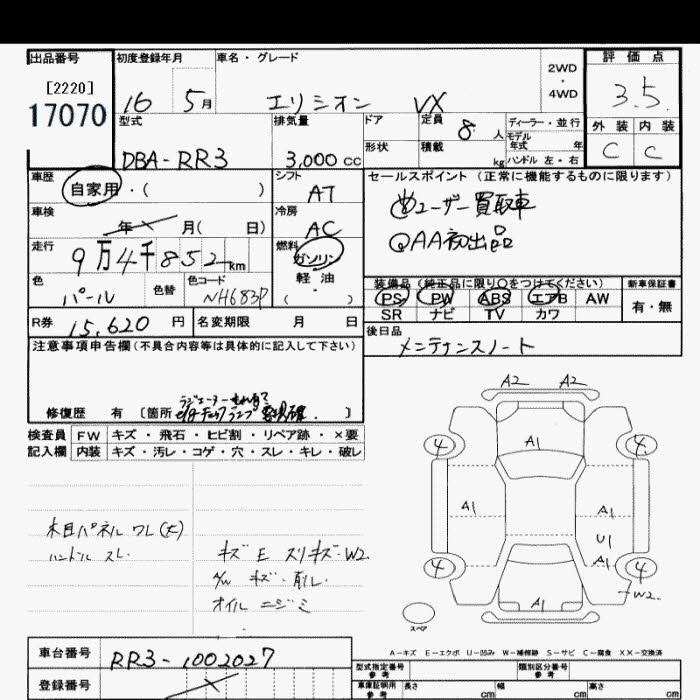 出品番号 初度登録年月 車名・グレード 評価点
[2220]
17070
16 5月 エリシオン VX
2WD
・
4WD
3.5
型式 排気量 ドア 定員 8人 ディーラー・並行 外装 内装
形状 積載 kg モデル年式 年
DBA-RR3 3,000cc ハンドル 左・右 C C
車歴 シフト セールスポイント (正常に機能するものに限ります)
自家用・( ) AT
ユーザー買取車
車検 冷房
年 月( 日) AC
QAA初出品
走行 燃料
9万4千852km ガソリン
軽油
( )
色 色替 色コード
パール NH683P
装備品 (純正品に限り○をつけてください) 新車保証書
PS PW ABS エアB AW 有・無
SR ナビ TV カワ
R券 15,620円 名変期限 月 日
後日品
メンテナンスノート
注意事項申告欄(不具合内容等は具体的に記入して下さい)
修復歴 有 [箇所 ]
検査員 FW キズ・飛石・ヒビ割・リペア跡・×要
記入欄 内装 キズ・汚レ・コゲ・穴・スレ・キレ・破レ
A2 A2
A1
4 4
A1 A1
U1
A1
4 4
A1 W2
スペア
木目パネル ワレ(大)
ハンドル スレ
キズ E スリキズ・W2
A/W キズ・削レ
オイルニジミ
A-キズ E-エクボ U-凹み W-補修跡 S-サビ C-腐食 XX-交換済
車台番号 RR3-1002027
型式指定番号 参考 類別区分番号 参考
登録番号
車庫証明用 参考 長さ cm 幅 cm 高さ cm